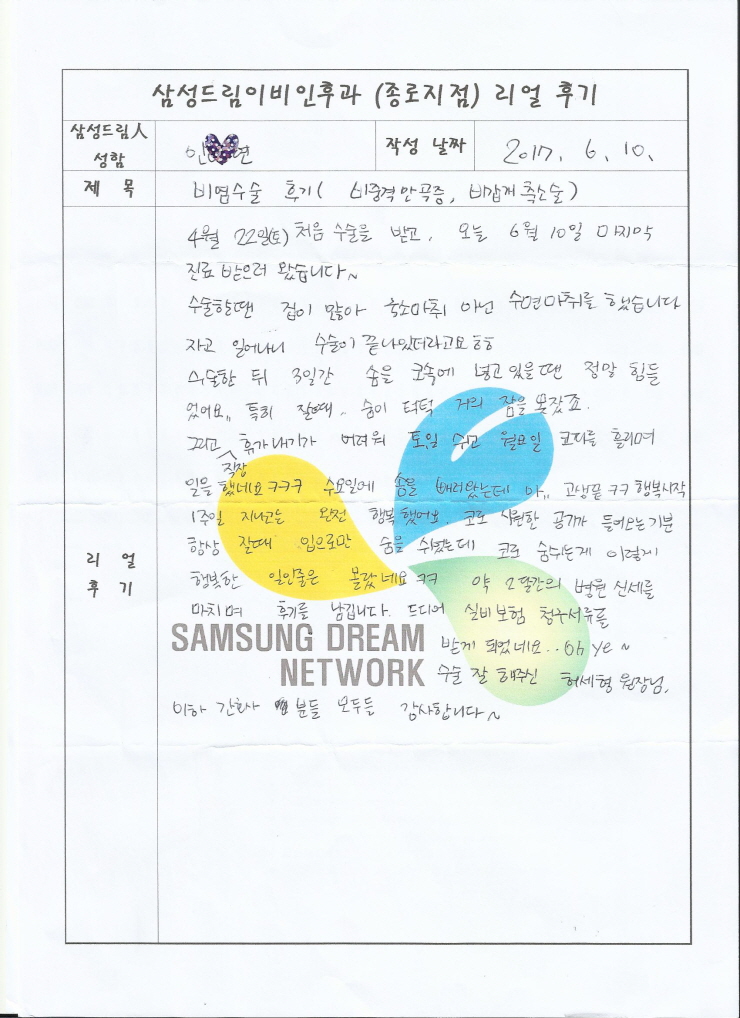 삼성드림이비인후과 (종로지점) 리얼 후기
삼성드림人 성함
인 연
작성 날짜
2017. 6. 10.
제 목
비염수술 후기( 비중격만곡증, 비갑개축소술)
리 얼
후 기
4월 22일(토) 처음 수술을 받고, 오늘 6월 10일 마지막
진료 받으러 왔습니다~
수술할땐 겁이 많아 국소마취 아닌 수면마취를 했습니다
자고 일어나니 수술이 끝나있더라고요 ㅎㅎ
수술한 뒤 3일간 솜을 코속에 넣고 있을땐 정말 힘들
었어요,, 특히 잘때.. 숨이 턱턱 거의 잠을 못잤죠.
그리고 직장 휴가내기가 어려워 토,일 쉬고 월요일 코피를 흘리며
일을 했네요 ㅋㅋㅋ 수요일에 솜을 빼러왔는데 아,, 고생끝 ㅋㅋ 행복시작
1주일 지나고는 완전 행복했어요. 코로 시원한 공기가 들어오는기분
항상 잘때 입으로만 숨을 쉬었는데 코로 숨쉬는게 이렇게
행복한 일인줄은 몰랐네요 ㅋㅋ 약 2달간의 병원 신세를
마치며 후기를 남깁니다. 드디어 실비보험 청구서류를
받게 되었네요.. oh ye ~
수술 잘 해주신 허세형 원장님,
이하 간호사 분들 모두들 감사합니다~
SAMSUNG DREAM
NETWORK